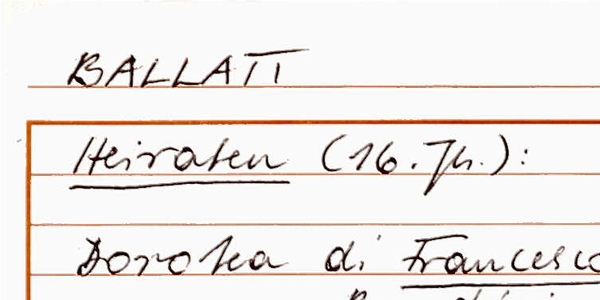 BALLATI
Heiraten (16. Jh.):
Dorotea di Francesco